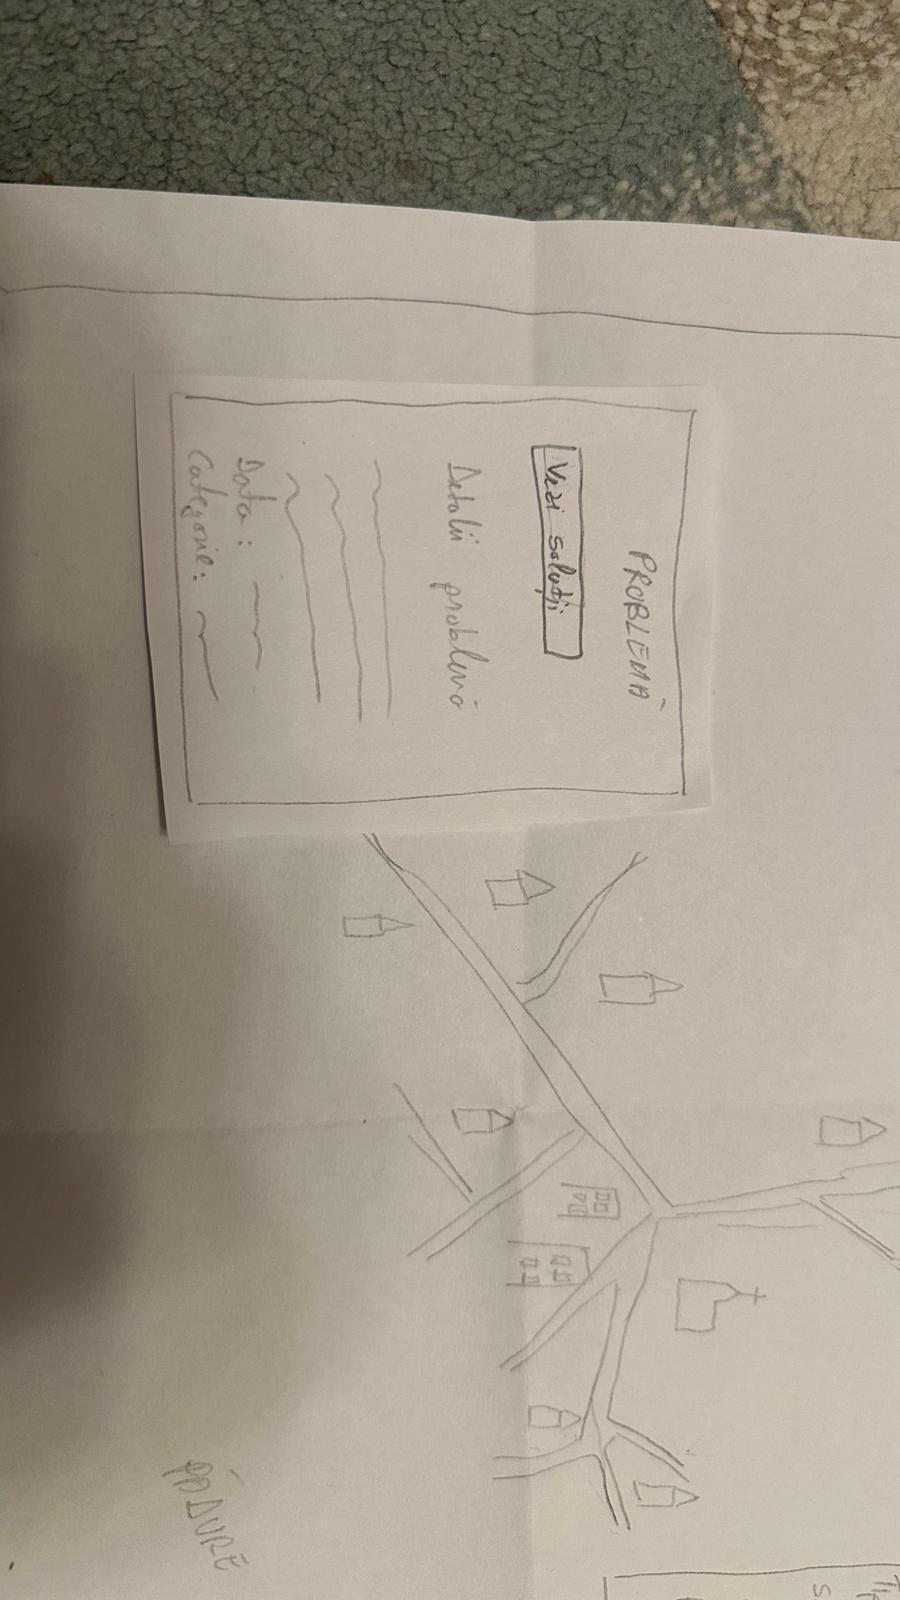 PROBLEMĂ
Vezi soluții
Detalii problemă
Data:
Categorie:
PĂDURE